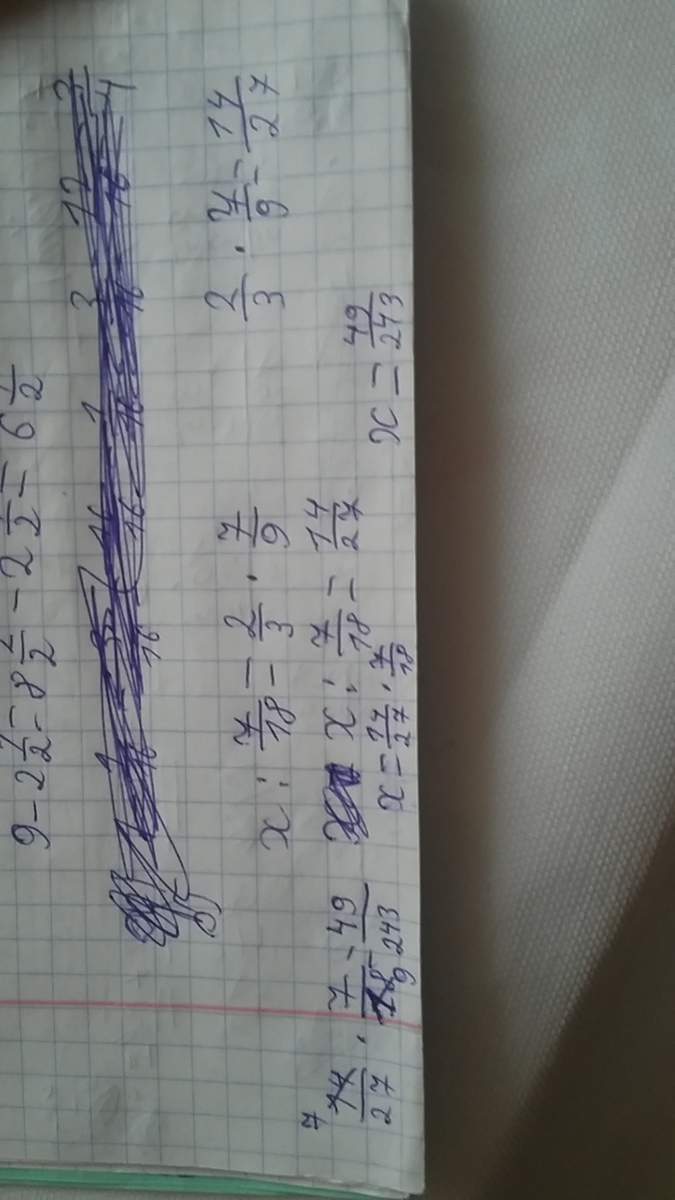 9 - 2 1/2 = 8 2/2 - 2 1/2 = 6 1/2
x : 7/18 = 2/3 · 7/9
2/3 · 7/9 = 14/27
x : 7/18 = 14/27
x = 14/27 · 7/18
x = 49/243
7 14/27 · 7/18 9 = 49/243